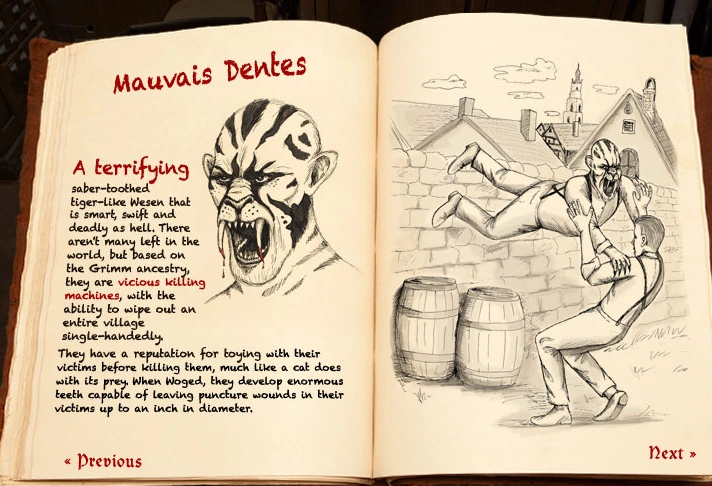 Mauvais Dentes
A terrifying
saber-toothed
tiger-like Wesen that
is smart, swift and
deadly as hell. There
aren't many left in the
world, but based on
the Grimm ancestry,
they are vicious killing
machines, with the
ability to wipe out an
entire village
single-handedly.
They have a reputation for toying with their
victims before killing them, much like a cat does
with its prey. When Woged, they develop enormous
teeth capable of leaving puncture wounds in their
victims up to an inch in diameter.
« Previous
Next »